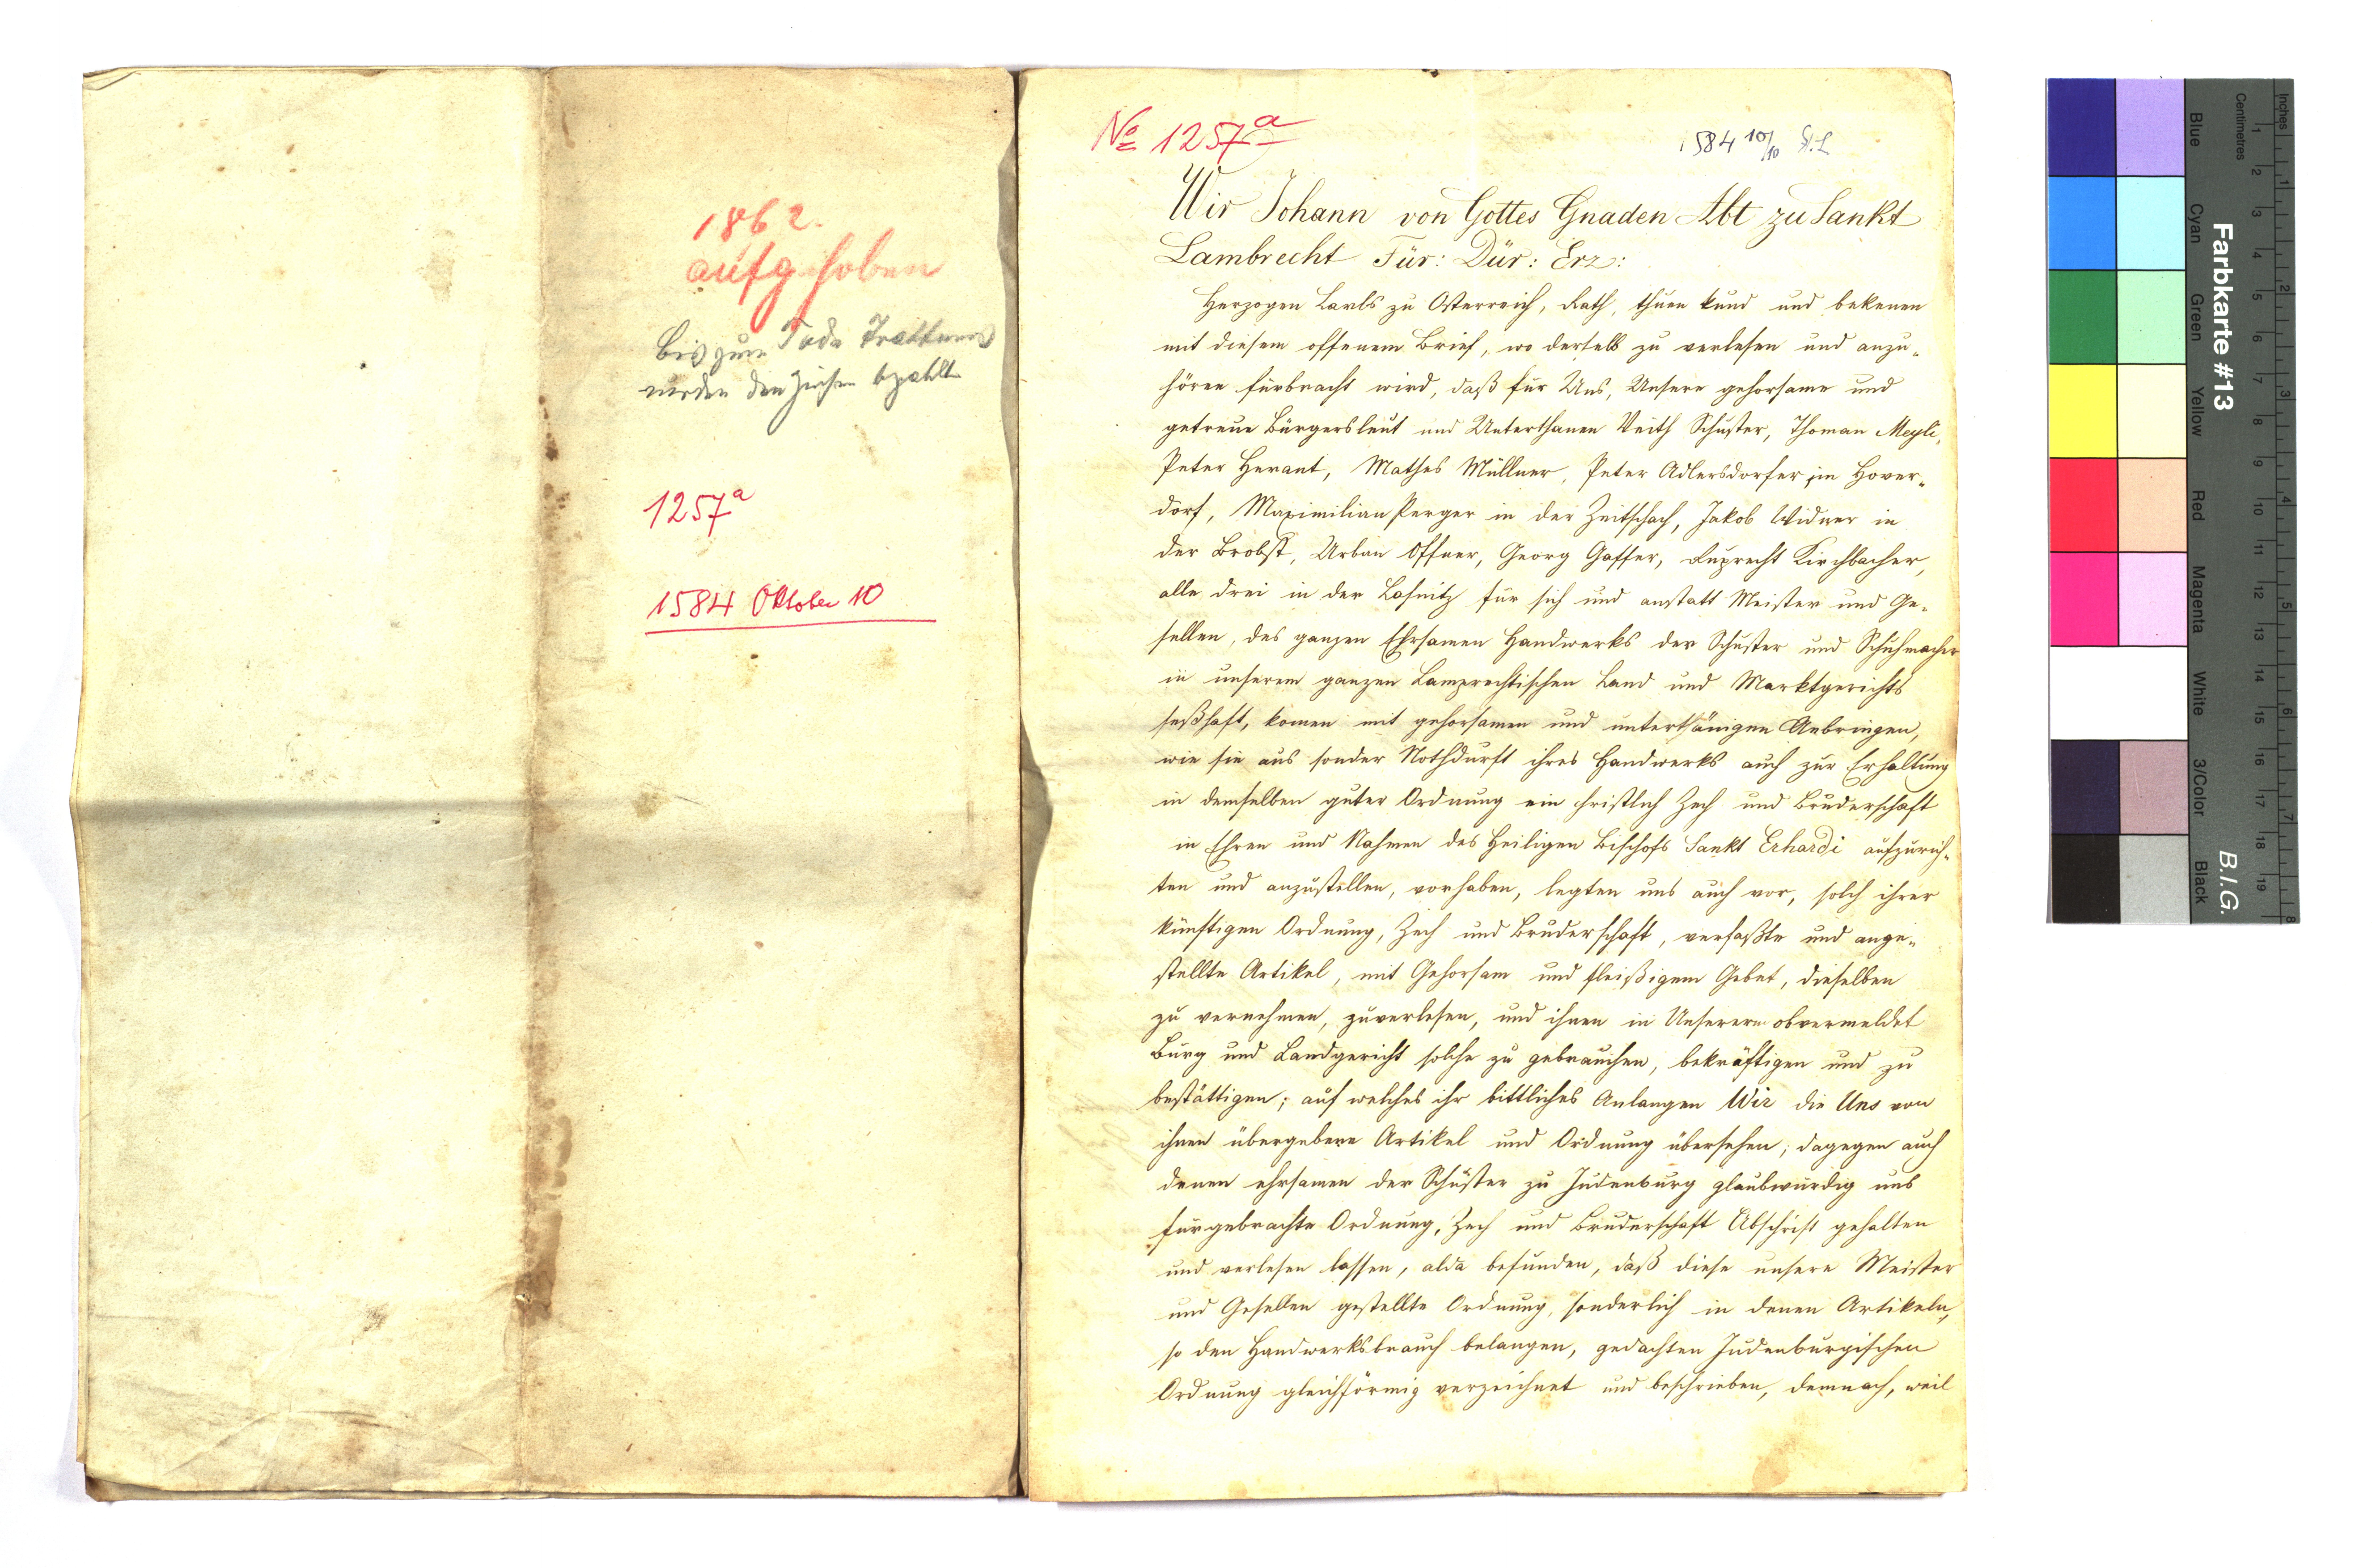 1862.
aufgehoben
bis zum Tode Trattners
wurden den Zinsen bezahlt
1257a
1584 Oktober 10
No 1257a
1584 10/10 St. L
Wir Johann von Gottes Gnaden Abt zu Sankt
Lambrecht Für: Dür: Erz:
Herzogen Carls zu Österreich, Rath, thuen kund und bekenen
mit diesem offenem Brief, wo derselb zu verlesen und anzu-
hören fürbracht wird, daß für Uns, Unsere gehorsame und
getreue Bürgersleut und Unterthanen Veith Schuster, Thoman Meyli,
Peter Herant, Mathes Müllner, Peter Adlersdorfer im Hover-
dorf, Maximilian Perger in der Zeitschach, Jakob Widmer in
der Probst, Urban Offner, Georg Gasser, Ruprecht Kirchbacher,
alle drei in der Laßnitz für sich und anstatt Meister und Ge-
sellen, des ganzen Ehrsamen Handwerks der Schuster und Schuhmacher
in unserem ganzen Lamprechtischen Land und Marktgerichts
seßhaft, komen mit gehorsamen und unterthänigen Anbringen,
wie sie aus sonder Nothdurft ihres Handwerks auch zur Erhaltung
in demselben guter Ordnung ein christlich Zech und Bruderschaft
in Ehren und Nahmen des Heiligen Bischofs Sankt Erhardi aufzurich-
ten und anzustellen, vorhaben, legten uns auch vor, solch ihrer
künftigen Ordnung, Zech und Bruderschaft, verfaßte und ange-
stellte Artikel, mit Gehorsam und fleißigem Gebet, dieselben
zu vernehmen, zuverlesen, und ihnen in Unserern obvermeldet
Burg und Landgericht solche zu gebrauchen, bekräftigen und zu
bestättigen; auf welches ihr bittliches Anlangen Wir die Uns von
ihnen übergebene Artikel und Ordnung übersehen; dagegen auch
denen ehrsamen der Schuster zu Judenburg glaubwürdig uns
fürgebrachte Ordnung, Zech und Bruderschaft Abschrift gehalten
und verlesen lassen, alda befunden, daß diese unsere Meister
und Gesellen gestellte Ordnung, sonderlich in denen Artikeln,
so den Handwerksbrauch belangen, gedachten Judenburgischen
Ordnung gleichförmig verzeichnet und beschrieben, demnach, weil
Inches
Centimetres
Farbkarte #13
B.I.G.
Blue
Cyan
Green
Yellow
Red
Magenta
White
3/Color
Black